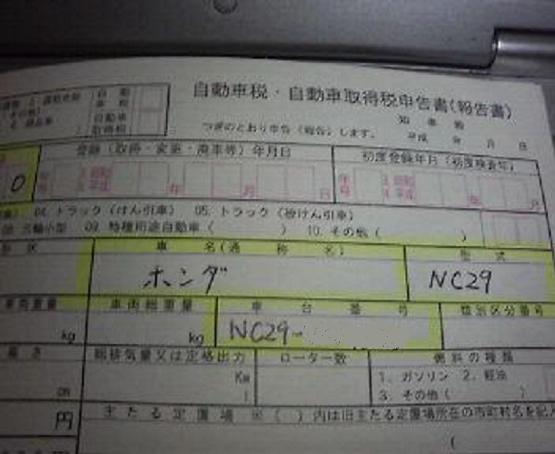 自動車税・自動車取得税申告書(報告書)
知事殿
つぎのとおり申告(報告)します。 平成 年 月 日
自動車税
自動車取得税
登録(取得・変更・廃車等)年月日 初度登録年月(初度検査年)
.0 年号 昭和 平成 年 月 日 年号 昭和 平成 年 月
04. トラック(けん引車) 05. トラック(被けん引車)
三輪小型 09. 特種用途自動車( ) 10. その他( )
車名(通称名) 型式
ホンダ NC29
車両重量 車両総重量 車台番号 類別区分番号
kg kg NC29-
高さ 総排気量又は定格出力 ローター数 燃料の種類
cm Kw l 1. ガソリン 2. 軽油
3. その他( )
円 主たる定置場 ※( )内は旧主たる定置場所在の市町村名を記入
(